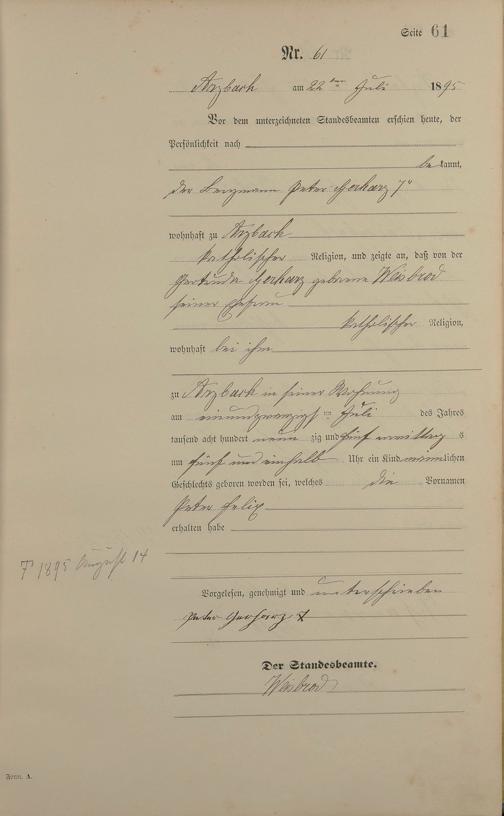 Seite 61
Nr. 61
Arzbach am 22ten Juli 1895
Vor dem unterzeichneten Standesbeamten erschien heute, der
Persönlichkeit nach
bekannt,
der Bergmann Peter Gerharz
wohnhaft zu Arzbach
katholischer Religion, und zeigte an, daß von der
Gertrude Gerharz geborene Weisbrod
seiner Ehefrau
katholischer Religion,
wohnhaft bei ihm
zu Arzbach in seiner Wohnung
am einundzwanzigsten Juli des Jahres
tausend acht hundert neunzig und fünf vormittags
um fünf und einhalb Uhr ein Kind männlichen
Geschlechts geboren worden sei, welches die Vornamen
Peter Felix
erhalten habe
† 1895 August 14
Vorgelesen, genehmigt und unterschrieben
Peter Gerharz
Der Standesbeamte.
Weisbrod
Form. A.